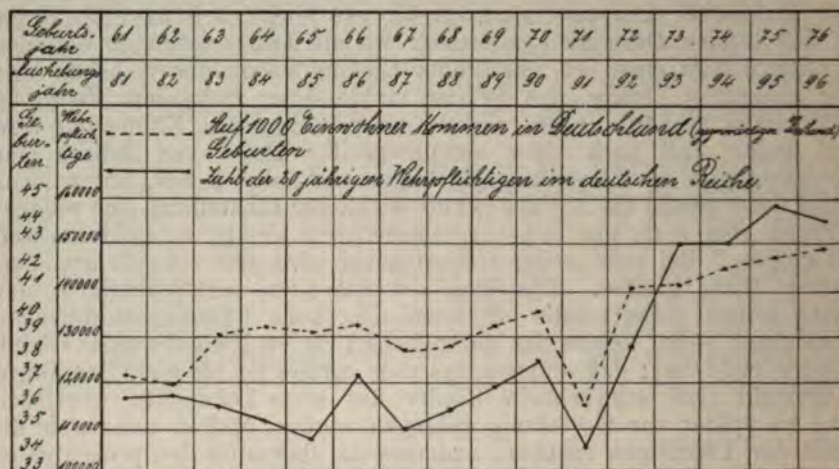 Geburts-
jahr 61 62 63 64 65 66 67 68 69 70 71 72 73 74 75 76
Aushebungs
jahr 81 82 83 84 85 86 87 88 89 90 91 92 93 94 95 96
Ge-
bur-
ten
Wehr-
pflich
tige
Auf 1000 Einwohner kommen in Deutschland (gegenwärtiger Bestand)
Geburten
Zahl der 20 jährigen Wehrpflichtigen im deutschen Reiche.
45 160000
44
43 150000
42
41 140000
40
39 130000
38
37 120000
36
35 110000
34
33 100000